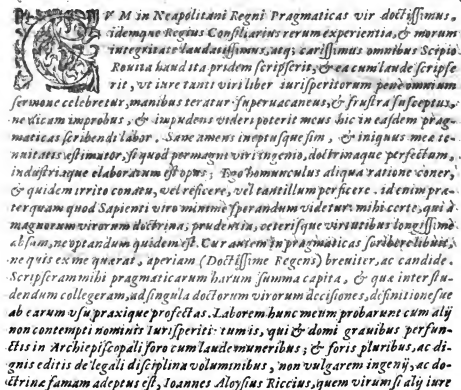 CVM in Neapolitani Regni Pragmaticas vir doctissimus,
idemque Regius Consiliarius rerum experientia, & morum
integritate laudatissimus, atq; carissimus omnibus Scipio
Rouita haud ita pridem scripserit, & ea cum laude scripse
rit, vt iure tanti viri liber iurisperitorum penè omnium
sermone celebretur, manibus teratur superuacaneus, & frustra susceptus,
ne dicam improbus, & impudens videri poterit meus hic in easdem prag
maticas scribendi labor. Sane amens ineptusque sim, & iniquus meæ te-
nuitatis æstimator, si quod permagni viri ingenio, doctrinaque perfectum,
industriaque elaboratum est opus; Ego homunculus aliqua ratione coner,
& quidem irrito conatu, vel reficere, vel tantillum perficere. id enim præ-
ter quam quod Sapienti viro minimè sperandum videtur: mihi certe, qui à
magnorum virorum doctrina, prudentia, ceterisque virtutibus longissimè
absum, ne optandum quidem est. Cur autem in pragmaticas scribere libuit,
ne quis ex me quærat, aperiam (Doctissime Regens) breuiter, ac candide.
Scripseram mihi pragmaticarum harum summa capita, & quæ inter stu-
dendum collegeram, ad singula doctorum virorum decisiones, definitionesue
ab earum vsu praxique profectas. Laborem hunc meum probarunt cum alij
non contempti nominis Iurisperiti tum is, qui & domi grauibus perfun-
ctis in Archiepiscopali foro cum laude muneribus; & foris pluribus, ac di-
gnis editis de legali disciplina voluminibus, non vulgarem ingenij, ac do-
ctrinæ famam adeptus est, Ioannes Aloysius Riccius, quem virum si alij iure